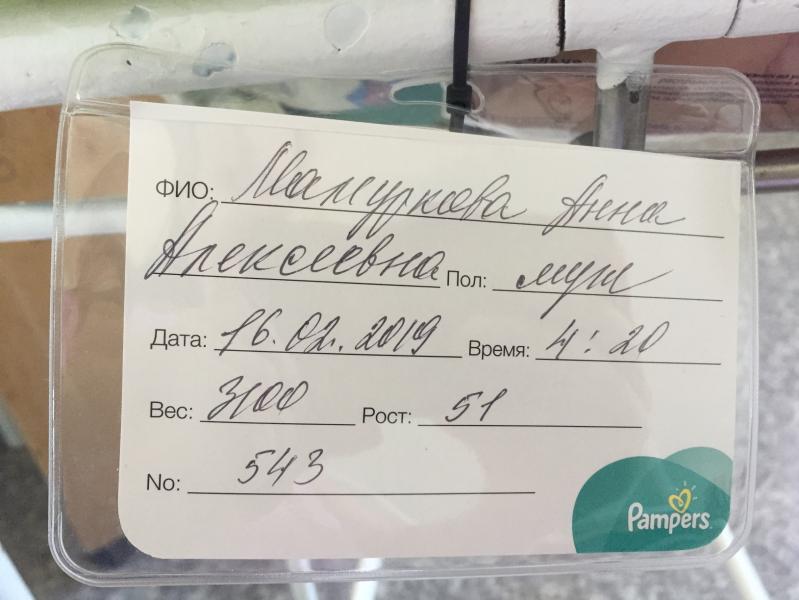 ФИО: Мамуркова Анна
Алексеевна Пол: муж
Дата: 16.02.2019 Время: 4:20
Вес: 3100 Рост: 51
No: 543
Pampers